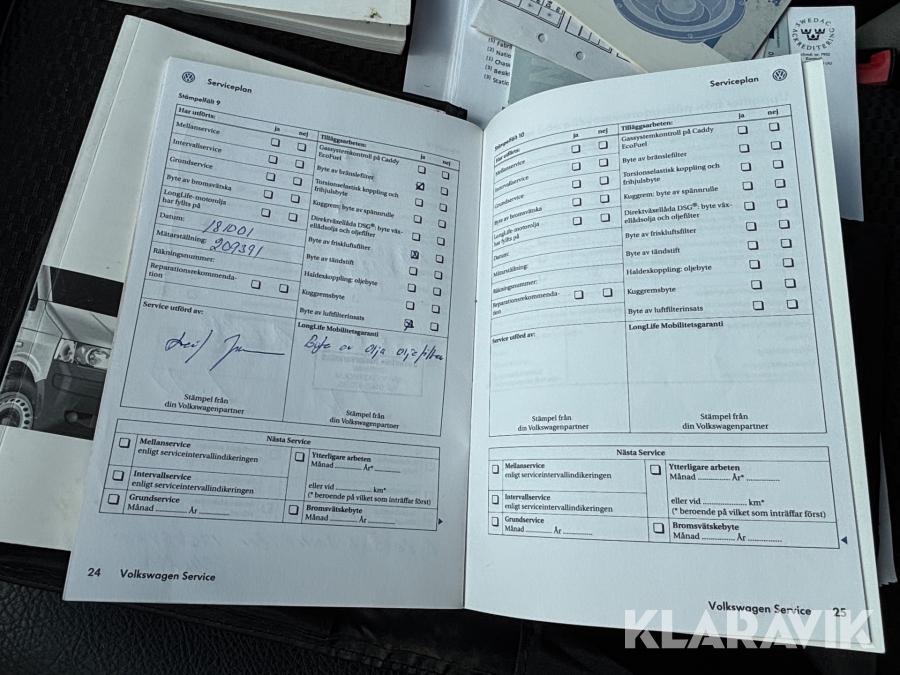 (1) Fabri
(2) Natio
(3) Chass
(4) Besikt
(5) Statio
SWEDAC
ACKREDITERING
Serviceplan
Stämpelfält 9
Har utförts: ja nej
Mellanservice
Intervallservice
Grundservice
Byte av bromsvätska
LongLife-motorolja
har fyllts på
Datum: 181001
Mätarställning: 209391
Räkningsnummer:
Reparationsrekommenda-
tion
Tilläggsarbeten: ja nej
Gassystemkontroll på Caddy
EcoFuel
Byte av bränslefilter
Torsionselastisk koppling och
frihjulsbyte
Kuggrem: byte av spännrulle
Direktväxellåda DSG®: byte väx-
ellådsolja och oljefilter
Byte av friskluftsfilter
Byte av tändstift
Haldexkoppling: oljebyte
Kuggremsbyte
Byte av luftfilterinsats
Service utförd av:
LongLife Mobilitetsgaranti
Byte av olja oljefilter
Stämpel från
din Volkswagenpartner
Stämpel från
din Volkswagenpartner
Nästa Service
Mellanservice
enligt serviceintervallindikeringen
Intervallservice
enligt serviceintervallindikeringen
Grundservice
Månad .......... År ..........
Ytterligare arbeten
Månad .......... År* ..........
eller vid .................... km*
(* beroende på vilket som inträffar först)
Bromsvätskebyte
Månad .......... År ..........
24 Volkswagen Service
Serviceplan
Stämpelfält 10
Har utförts: ja nej
Mellanservice
Intervallservice
Grundservice
Byte av bromsvätska
LongLife-motorolja
har fyllts på
Datum:
Mätarställning:
Räkningsnummer:
Reparationsrekommenda-
tion
Tilläggsarbeten: ja nej
Gassystemkontroll på Caddy
EcoFuel
Byte av bränslefilter
Torsionselastisk koppling och
frihjulsbyte
Kuggrem: byte av spännrulle
Direktväxellåda DSG®: byte väx-
ellådsolja och oljefilter
Byte av friskluftsfilter
Byte av tändstift
Haldexkoppling: oljebyte
Kuggremsbyte
Byte av luftfilterinsats
Service utförd av:
LongLife Mobilitetsgaranti
Stämpel från
din Volkswagenpartner
Stämpel från
din Volkswagenpartner
Nästa Service
Mellanservice
enligt serviceintervallindikeringen
Intervallservice
enligt serviceintervallindikeringen
Grundservice
Månad .......... År ..........
Ytterligare arbeten
Månad .......... År* ..........
eller vid .................... km*
(* beroende på vilket som inträffar först)
Bromsvätskebyte
Månad .......... År ..........
Volkswagen Service 25
KLARAVIK